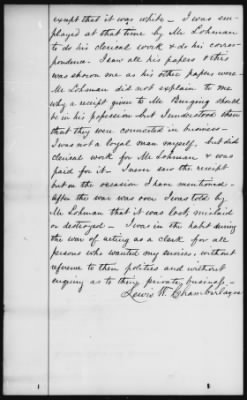 except that it was white – I was em-
ployed at that time by Mr Lohman
to do his clerical work & do his corres-
pondence. I saw all his papers & this
was shown me as his other papers were –
Mr Lohman did not explain to me
why a receipt given to Mr should
be in his possession but I understood then
that they were connected in business –
I was not a loyal man myself, but did
clerical work for Mr Lohman & was
paid for it – I never saw the receipt
but on the occasion I have mentioned –
After the war was over I was told by
Mr Lohman that it was lost, mislaid
or destroyed – I was in the habit during
the war of acting as a clerk for all
persons who wanted my services, without
reference to their politics and without
enquiry as to their private business –
Lewis W. Chamberlayne